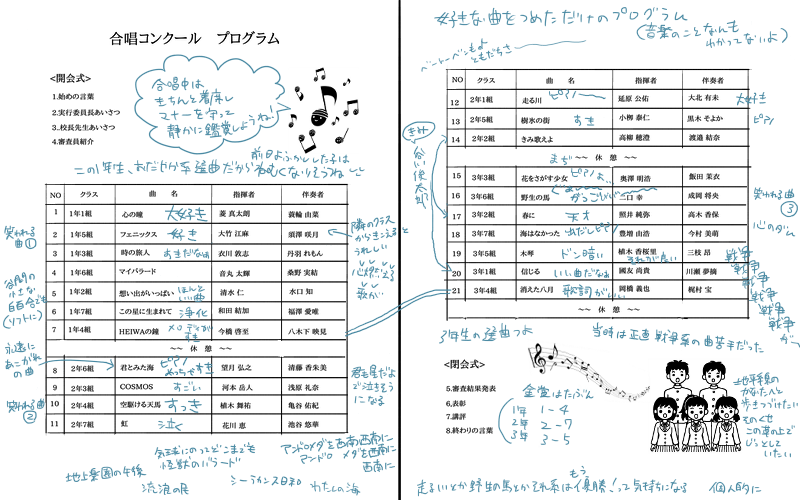 合唱コンクール　プログラム
<開会式>
1.始めの言葉
2.実行委員長あいさつ
3.校長先生あいさつ
4.審査員紹介
合唱中は
きちんと着席し
マナーを守って
静かに鑑賞しましょうね!
前日よふかしした子は
この1年生、おだやか系選曲だからねむくなりそうねしし
NO クラス 曲　名 指揮者 伴奏者
1 1年1組 心の瞳 大好き 菱 真太朗 簑輪 由菜
2 1年5組 フェニックス 好き 大竹 江麻 須澤 咲月
3 1年3組 時の旅人 あきだなぁ 衣川 敦志 丹羽 れもん
4 1年6組 マイバラード 音丸 太輝 桑野 実結
5 1年2組 想い出がいっぱい ほんといい曲 清水 仁 水口 知
6 1年7組 この星に生まれて 浄化 和田 結加 福澤 愛唯
7 1年4組 HEIWAの鐘 メロディが好き 今橋 啓至 八木下 映見
~~ 休　憩 ~~
8 2年6組 君とみた海 ピアノめっちゃすき 望月 弘之 清藤 香朱美
9 2年3組 COSMOS すごい 河本 岳人 浅原 礼奈
10 2年4組 空駆ける天馬 すっき 植木 舞祐 亀谷 佑紀
11 2年7組 虹 泣く 花川 恵 池谷 悠華
笑われる
曲①
谷間の
小さな
百合でも
(ソフトに)
永遠に
あこがれ
の曲
笑われる曲
②
隣のクラス
からきこえると
うれしい
心燃える
歌が
君も星だよ
で泣きそう
になる
気球にのってどこまでも
怪獣のバラード
アンドロメダを西南西南に
アンドロ メダを西南
西南に
地上楽園の午後
流浪の民
シーラカンス日和
わたしの海
好きな曲をつめただけのプログラム
(音楽のことなんも
わかってないよ)
ベートーベンもよ
ともだちさ
NO クラス 曲　名 指揮者 伴奏者
12 2年1組 走る川 ピアノ〜 延原 公佑 大北 有未 大好き
13 2年5組 樹氷の街 すき 小栁 泰仁 黒木 そよか ピアノ
14 2年2組 きみ歌えよ 高柳 穂澄 渡邉 結奈
まぢ
~~ 休　憩 ~~
15 3年3組 花をさがす少女 ピアノよ… 奥澤 明浩 飯田 茉衣
16 3年6組 野生の馬 かっこいい 二口 幸 成岡 将央
17 3年2組 春に 天才 照井 純弥 高木 香保
18 3年7組 海はなかった 出だしピアノ 豊増 由浩 今村 美萌
19 3年5組 木琴 ドン暗い 植木 香桜里 三枝 昂 戦争
20 3年1組 信じる いい曲だなぁ 國友 尚貴 川瀬 夢摘 戦争
21 3年4組 消えた八月 歌詞がいい 岡橋 義也 梶村 宝 戦争
~~ 休　憩 ~~
谷川俊太郎
笑われる曲
③
心のダム
戦争
戦争
戦争
が…
3年生の選曲つよ
当時は正直戦争系の曲苦手だった
<閉会式>
5.審査結果発表
6.表彰
7.講評
8.終わりの言葉
金賞はたぶん
1年 1-4
2年 2-7
3年 3-5
地平線の
かなたへと
歩きつづけたい
そのくせ
この草の上で
じっとして
いたい
走る川とか野生の馬とかそれ系はもう優勝!って気持ちになる
個人的に